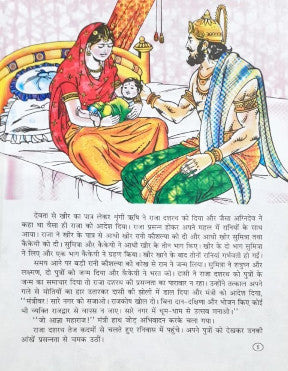 देवता से खीर का पात्र लेकर शृंगी ऋषि ने राजा दशरथ को दिया और जैसा अग्निदेव ने
कहा था वैसा ही राजा को आदेश दिया। राजा प्रसन्न होकर अपने महल में रानियों के साथ
आया। राजा ने खीर के पात्र से आधी खीर रानी कौशल्या को दी और आधी खीर सुमित्रा तथा
कैकेयी को दी। सुमित्रा और कैकेयी ने आधी खीर के तीन भाग किए। खीर के दो भाग सुमित्रा
ने लिए और एक भाग कैकेयी ने ग्रहण किया। खीर खाने के बाद तीनों रानियां गर्भवती हो गईं।
समय आने पर बड़ी रानी कौशल्या की कोख से राम ने जन्म लिया। सुमित्रा ने शत्रुघ्न और
लक्ष्मण, दो पुत्रों को जन्म दिया और कैकेयी ने भरत को। दासी ने राजा दशरथ को पुत्रों के
जन्म का समाचार दिया तो राजा दशरथ की प्रसन्नता का पारावार न रहा। उन्होंने तत्काल अपने
गले से मोतियों का हार उतारकर दासी की झोली में डाल दिया और मंत्री को आदेश दिया,
"मंत्रीवर! सारे नगर को सजाओ। राजकोष खोल दो। बिना दान-दक्षिणा और भोजन किए कोई
भी व्यक्ति राजद्वार से वापस न जाए। सारे नगर में धूम-धाम से उत्सव मनाओ।"
"जो आज्ञा महाराज!" मंत्री हाथ जोड़ अभिवादन करके चला गया।
राजा दशरथ तेज कदमों से चलते हुए रनिवास में पहुंचे। अपने पुत्रों को देखकर उनकी
आंखें प्रसन्नता से चमक उठीं।